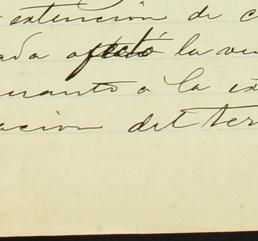 extención de c
ada afectó la ven
cuanto á la ex
ación del ter